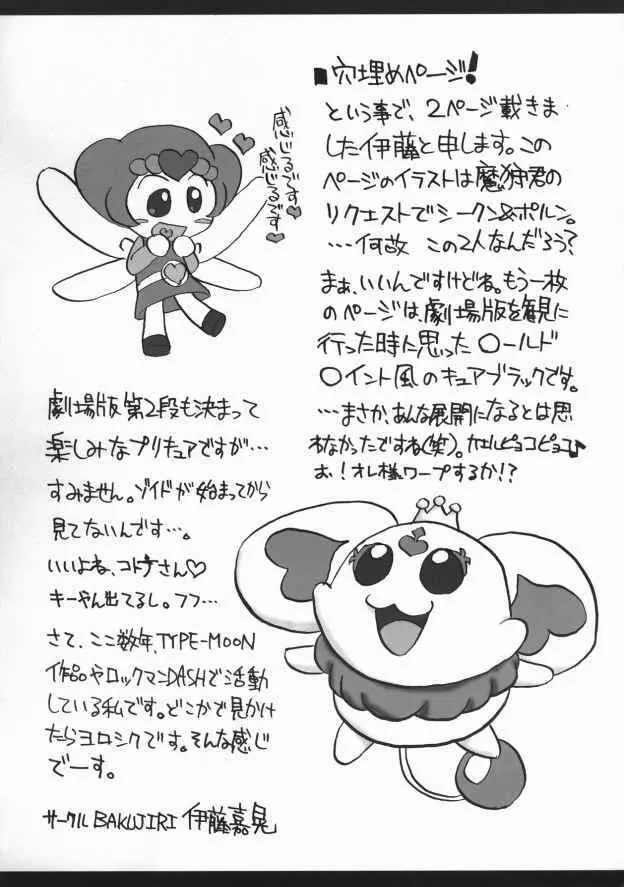 ■穴埋めページ!
という事で、2ページ載きま
した伊藤と申します。この
ページのイラストは魔狩君の
リクエストでシークン&ポルン。
…何故 この2人なんだろう?
まぁ、いいんですけどね。もう一枚
のページは、劇場版を観に
行った時に思った〇ールド
〇イント風のキュアブラックです。
…まさか、あんな展開になるとは思
わなかったですね(笑)。カエルピョコピョコ♪
お!オレ様、ワープするか!?
感じるですっ
感じるですっ
劇場版第2段も決まって
楽しみなプリキュアですが…
すみません。ゾイドが始まってから
見てないんです…。
いいよね、コトナさん♡
キーやん出てるし。フフ…
さて、ここ数年、TYPE-MOON
作品やロックマンDASHで活動
している私です。どこかで見かけ
たらヨロシクです。そんな感じ
でーす。
サークル BAKUJIRI 伊藤嘉晃